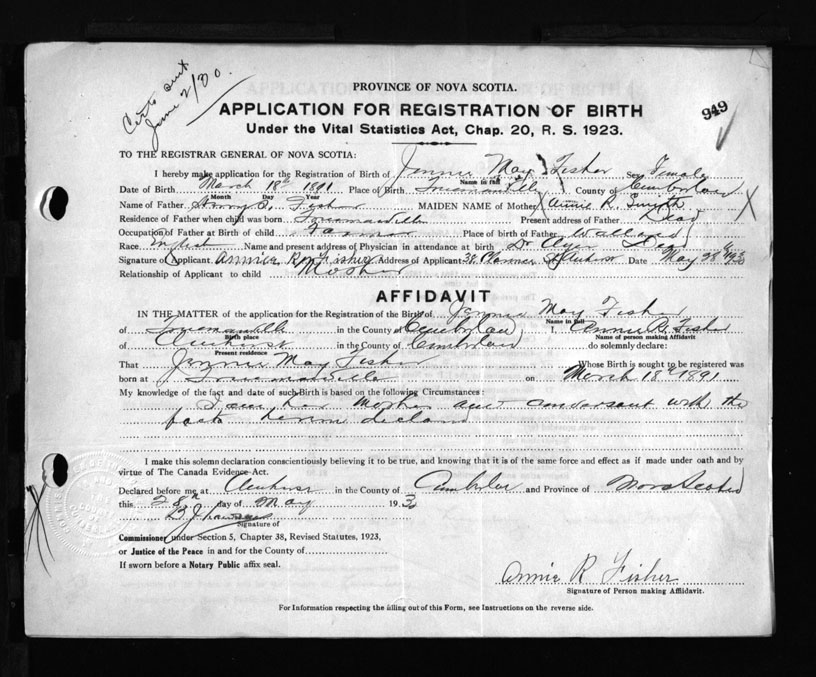 Certo sent
June 2/30.
PROVINCE OF NOVA SCOTIA.
APPLICATION FOR REGISTRATION OF BIRTH
949
Under the Vital Statistics Act, Chap. 20, R. S. 1923.
TO THE REGISTRAR GENERAL OF NOVA SCOTIA:
I hereby make application for the Registration of Birth of Jennie May Fisher Sex Female
Name in full
Date of Birth March 18th 1891 Place of Birth County of
Month Day Year
Name of Father Fisher MAIDEN NAME of Mother Annie R. Smith
Residence of Father when child was born Present address of Father Dead
Occupation of Father at Birth of child Farmer Place of birth of Father Wallace
Race Name and present address of Physician in attendance at birth Dr
Signature of Applicant Annie R Fisher Address of Applicant 38 St Amherst Date May 28th 1930
Relationship of Applicant to child Mother
AFFIDAVIT
IN THE MATTER of the application for Registration of the Birth of Jennie May Fisher
Name in full
of in the County of I, Annie R. Fisher
Birth place Name of person making Affidavit
of Amherst in the County of do solemnly declare:
Present residence
That Jennie May Fisher Whose Birth is sought to be registered was
born at on March 18th 1891
My knowledge of the fact and date of such Birth is based on the following Circumstances:
I am her Mother and conversant with the
facts herein declared
I make this solemn declaration conscientiously believing it to be true, and knowing that it is of the same force and effect as if made under oath and by
virtue of The Canada Evidence Act.
Declared before me at Amherst in the County of and Province of Nova Scotia
this 28th day of May 1930
Signature of
Commissioner under Section 5, Chapter 38, Revised Statutes, 1923,
or Justice of the Peace in and for the County of
If sworn before a Notary Public affix seal.
Annie R Fisher
Signature of Person making Affidavit.
For Information respecting the filling out of this Form, see Instructions on the reverse side.